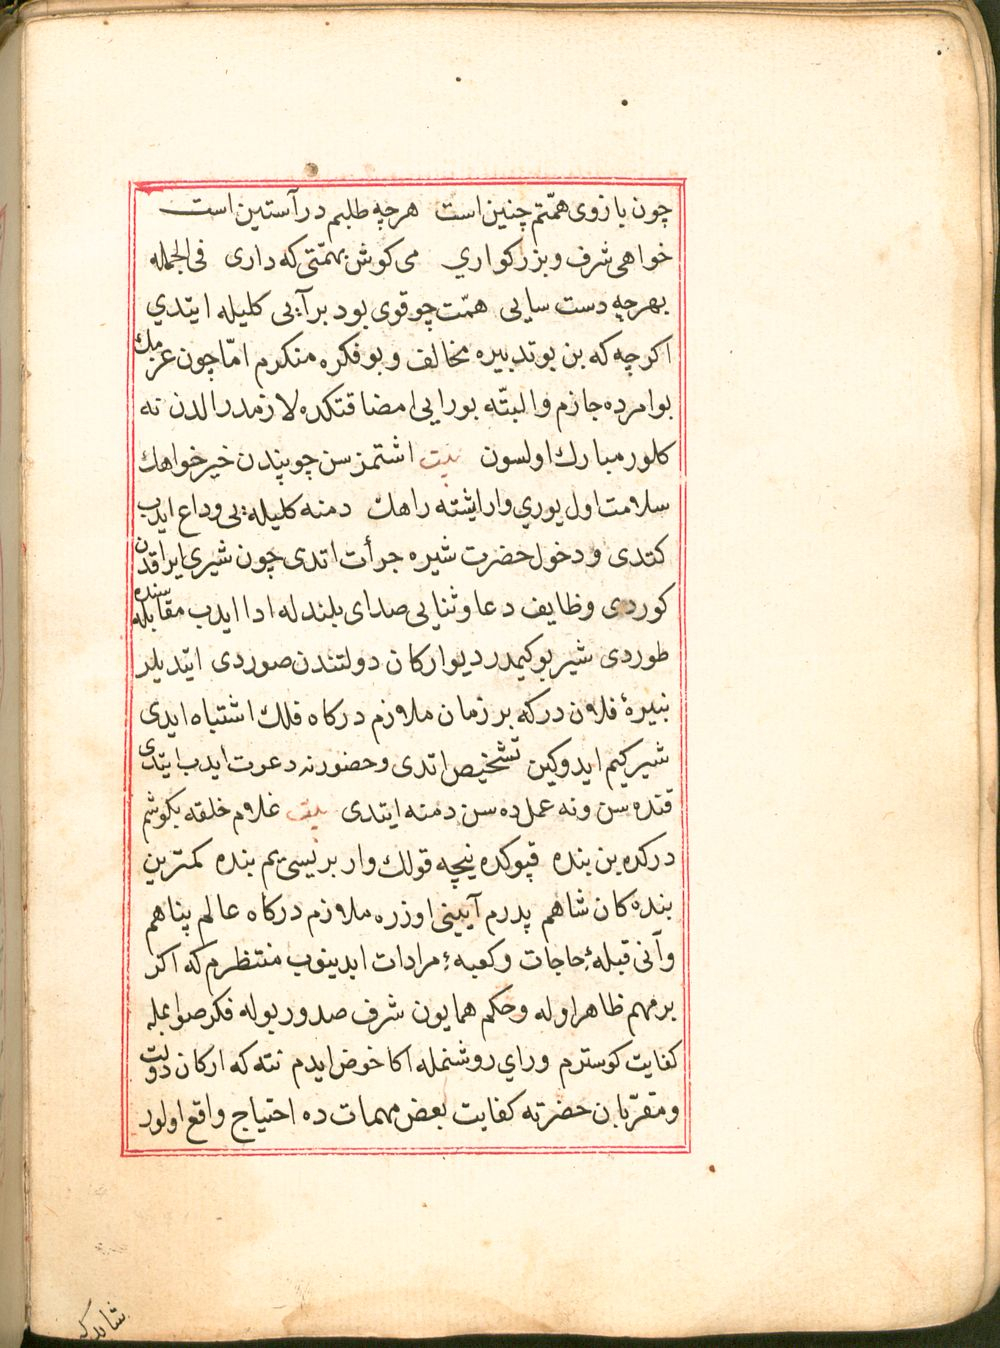 چون بازوی همّتم چنین است هرچه طلبم در آستین است
خواهی شرف و بزرکواری می کوش بهمّتی که داری فی الجمله
بهرچه دست سایی همّت چو قوی بود بر آیی کلیله ایتدی
اکرچه که بن بو تدبیره مخالف و بو فکره منکرم امّا چون عزمك
بو امرده جازم والبتّه بو رایی امضا قتکده لازمدر الدن نه
کلور مبارك اولسون بیت اشتمز سن چو پندن خیر خواهك
سلامت اول یوری وار ایشته راهك دمنه کلیله یی وداع ایدب
کتدی و دخول حضرت شیره جرأت اتدی چون شیری ایراقدن
کوردی وظایف دعا و ثنایی صدای بلندله ادا ایدب مقابله سنده
طوردی شیر بو کیمدر دیو ارکان دولتندن صوردی ایتدیلر
نبیرۀ فلان درکه بر زمان ملازم درکاه فلك اشتباه ایدی
شیر کیم ایدوکین تشخیص اتدی و حضورنه دعوت ایدب ایتدی
قنده سن و نه عملده سن دمنه ایتدی بیت غلام خلقه بکوشم
درکده بن بنده قپوکده نیچه قولك وار بریسی یم بنده کمترین
بنده کان شاهم پدرم آیینی اوزره ملازم درکاه عالم پناهم
و آنی قبلۀ حاجات و کعبۀ مرادات ایدینوب منتظرم که اکر
بر مهم ظاهر اوله و حکم همایون شرف صدور بوله فکر صوابمله
کفایت کوسترم و رای روشنمله اکا خوض ایدم نته که ارکان دولت
و مقرّبان حضرته کفایت بعض مهمات ده احتیاج واقع اولور
شاید که